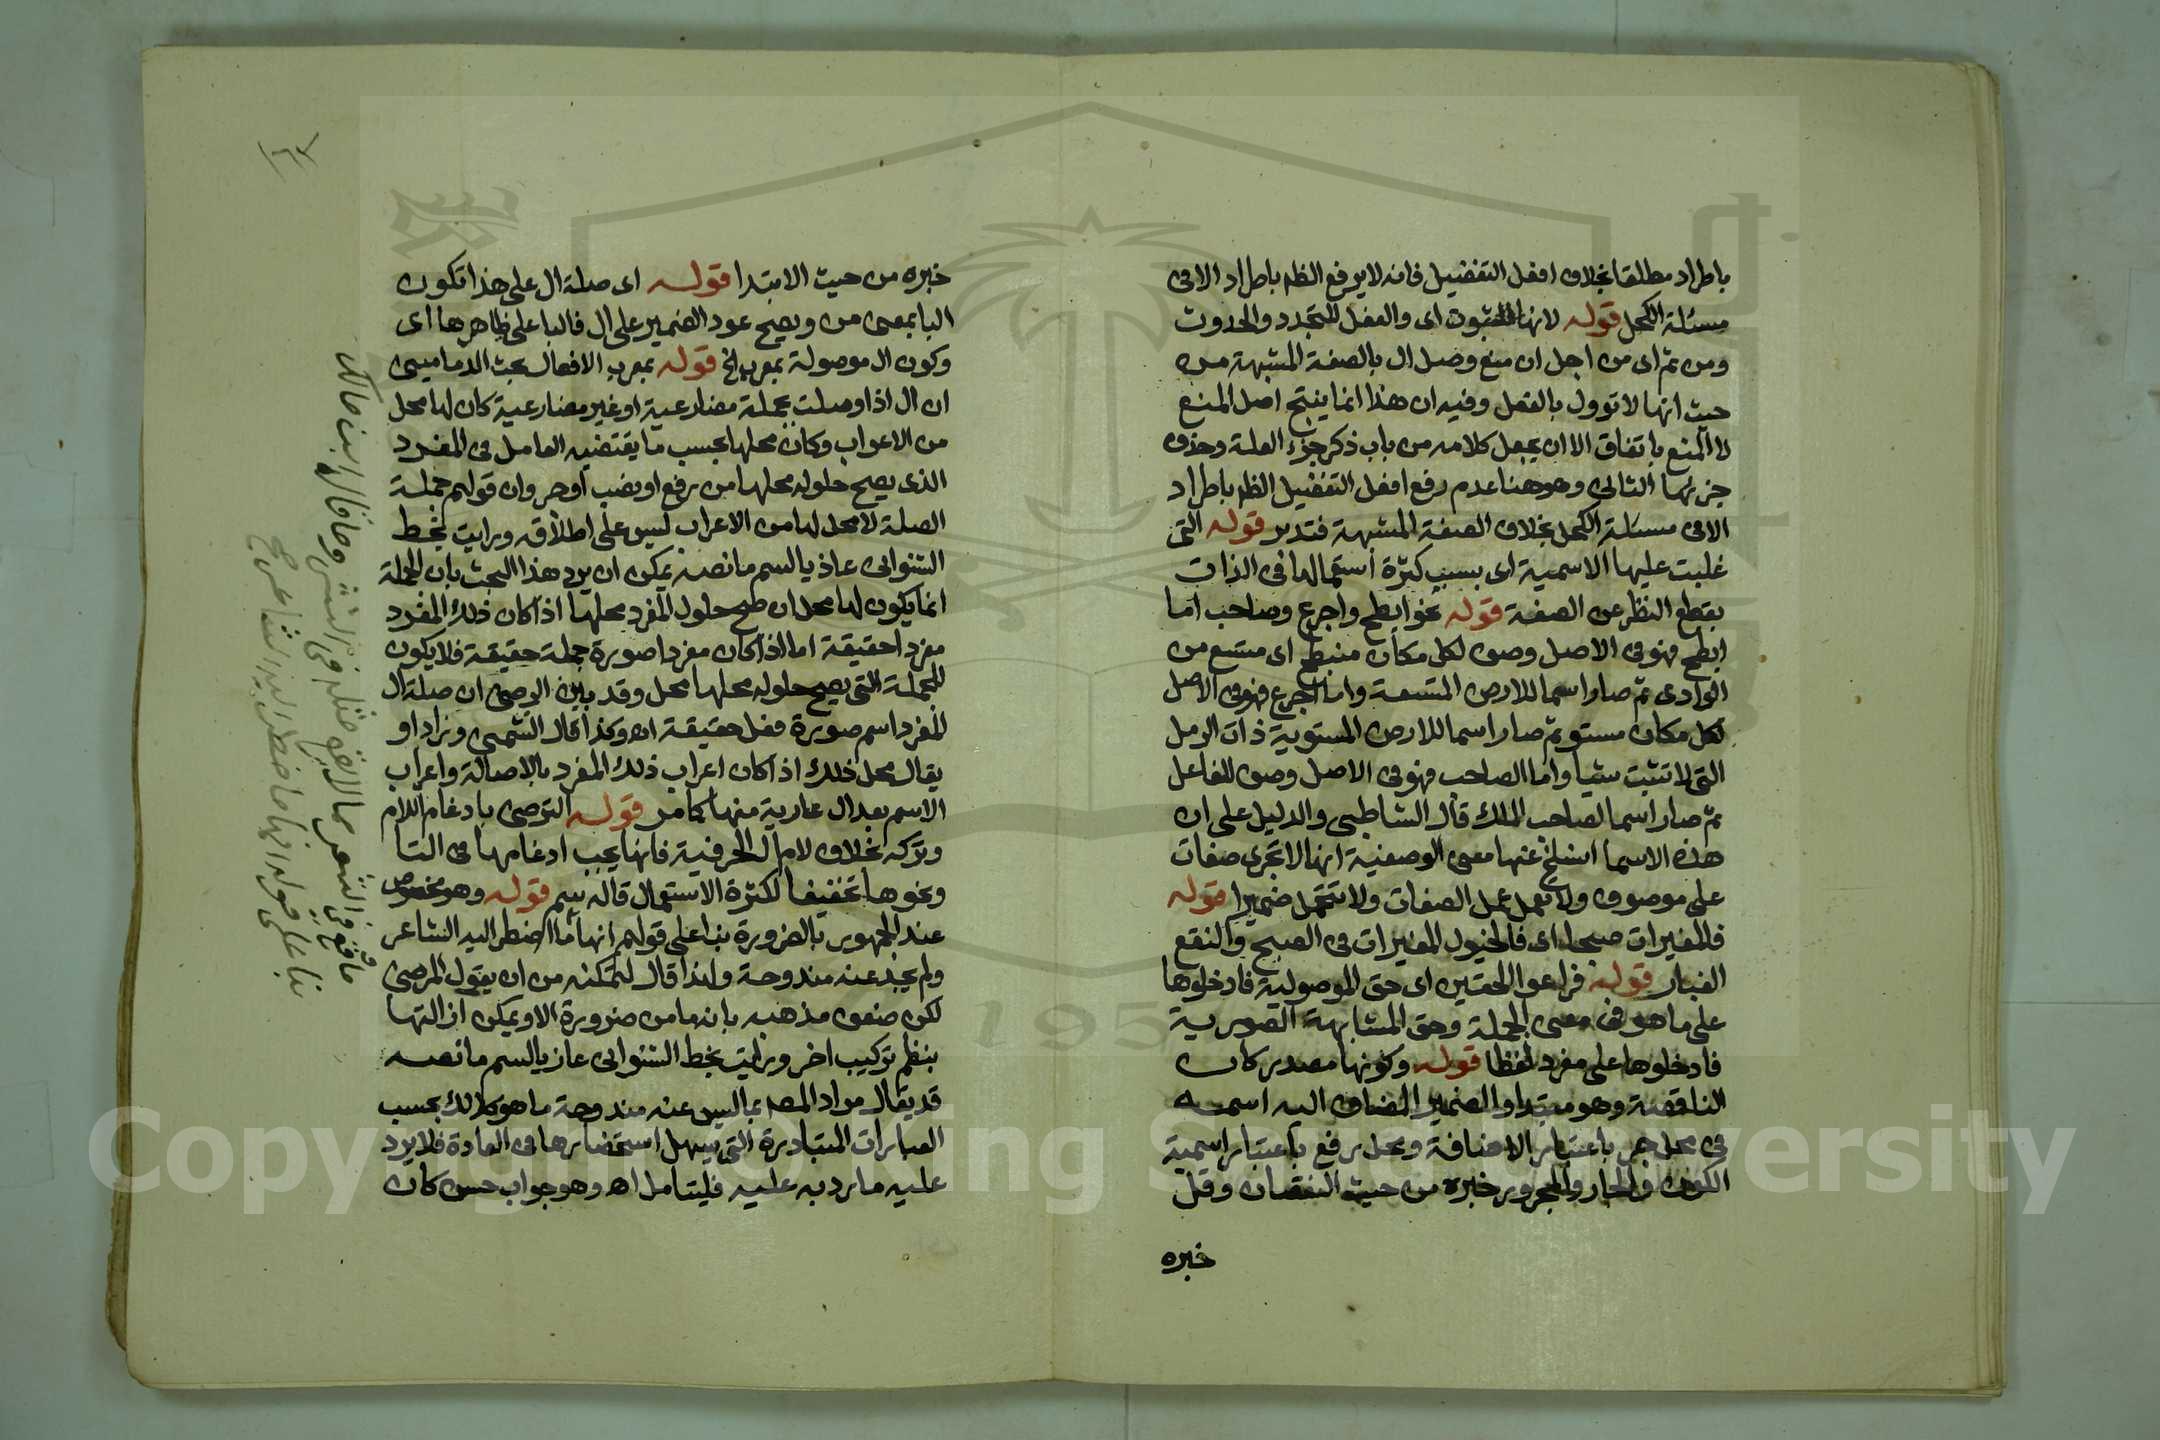 باطراد مطلقا بخلاف افعل التفضيل فانه لا يرفع الظ باطراد الا فى
مسئلة الكحل قوله لانها للثبوت اى والفعل للتجدد والحدوث
ومن ثم اى من اجل ان منع وصل ال بالصفة المشبهة من
حيث انها لا توول بالفعل وفيه ان هذا انما ينتج اصل المنع
لا المنع باتفاق الا ان يجعل كلامه من باب ذكر جزء العلة وحذف
جزئها الثانى وهو هنا عدم رفع افعل التفضيل الظ باطراد
الا فى مسئلة الكحل بخلاف الصفة المشبهة فتدبر قوله التى
غلبت عليها الاسمية اى بسبب كثرة استعمالها فى الذات
بقطع النظر عن الصفة قوله نحو ابطح واجرع وصاحب اما
ابطح فهو فى الاصل وصف لكل مكان منبطح اى متسع من
الوادى ثم صار اسما للارض المتسعة واما اجرع فهو فى الاصل
لكل مكان مستو ثم صار اسما للارض المستوية ذات الرمل
التى لا تنبت شيا واما الصاحب فهو فى الاصل وصف للفاعل
ثم صار اسما لصاحب الملك قال الشاطبى والدليل على ان
هذه الاسما انسلخ عنها معنى الوصفية انها لا تجرى صفات
على موصوف ولا تعمل عمل الصفات ولا تتحمل ضميرا قوله
فالمغيرات صبحا اى فالخيول المغيرات فى الصبح والنقع
الغبار قوله فراعوا الحقين اى حق الموصولية فادخلوها
على ما هو فى معنى الجملة وحق المشابهة الصورية
فادخلوها على مفرد لفظا قوله وكونها مصدر كان
الناقصة وهو مبتدا والضمير المضاف اليه اسمه
فى محل جر باعتبار الاضافة ومحل رفع باعتبار اسمية
الكون والجار والمجرور خبره من حيث النقصان وقل
خبره
خبره من حيث الابتدا قوله اى صلة ال على هذا تكون
البا بمعنى من ويصح عود الضمير على ال فالبا على ظاهرها اى
وكون ال موصولة بمعرب الخ قوله بمعرب الافعال بحث الدمامينى
ان ال اذا وصلت بجملة مضارعية او غير مضارعية كان لها محل
من الاعراب وكان محلها بحسب ما يقتضيه العامل فى المفرد
الذى يصح حلوله محلها من رفع او نصب او جر وان قولهم جملة
الصلة لا محل لها من الاعراب ليس على اطلاقه ورايت بخط
الشنوانى عاذيا لسم ما نصه يمكن ان يرد هذا البحث بان الجملة
انما يكون لها محل ان صح حلول المفرد محلها اذا كان ذلك المفرد
مفردا حقيقة اما اذا كان مفردا صورة جملة حقيقة فلا يكون
للجملة التى يصح حلوله محلها محل وقد بين الرضى ان صلة ال
المفرد اسم صورة فعل حقيقة اه وكذا قال الشمنى وزاد او
يقال محل ذلك اذا كان اعراب ذلك المفرد بالاصالة واعراب
الاسم بعد ال عارية منها كما مر قوله الترضى بادغام اللام
وتركه بخلاف لام ال الحرفية فانها يجب ادغامها فى التا
ونحوها تخفيفا لكثرة الاستعمال قاله سم قوله وهو مخصوص
عند الجمهور بالضرورة بنا على قولهم انها ما اضطر اليه الشاعر
ولم يجد عنه مندوحة ولذا قال لتمكنه من ان يقول المرضى
لكن ضعف مذهبه بانه ما من ضرورة الا ويمكن ازالتها
بنظم تركيب اخر ورايت بخط الشنوانى عازيا لسم ما نصه
قد يقال مراد المصـ بما ليس عنه مندوحة ما هو كذلك بحسب
العبارات المتبادرة التى يسهل استحضارها فى العادة فلا يرد
عليه ما رد به عليه فليتامل اه وهو جواب حسن كان
ما وقع فى الشعر مما لا يقع مثله فى النثر وما قال ابن مالك
بنا على قوله انها ما اضطر اليه الشاعر
Copyright © King Saud University
195